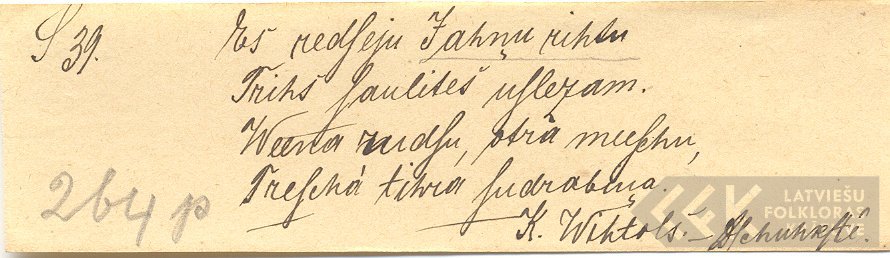 S 39.
Es redseju Jahņu rihtu
Trihs saulites uslezam.
Weena rudsu, otrà mueschu,
Treschá tihra sudrabiņa.
264 p
K. Wihtols. – Dschuhkstê.
LATVIEŠU
FOLKLORAS